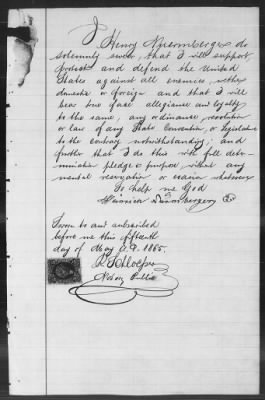 I Henry Nuernberger do
solemnly swear, that I will support,
protect and defend the United
States against all enemies, wether
domestic or foreign and that I will
bear true faec allegiance and loyalty
to the same, any ordinance, resolution
or law of any State Convention, or Legislature
to the contrary notwithstanding; and
further that I do this with full deter-
mination pledge & purpose without any
mental reservation or evasion whatsoever
So help me God
Heinrich Nürnberger
Sworn to and subscribed
before me this fifteenth
day of May A.D. 1865.
Notary Public